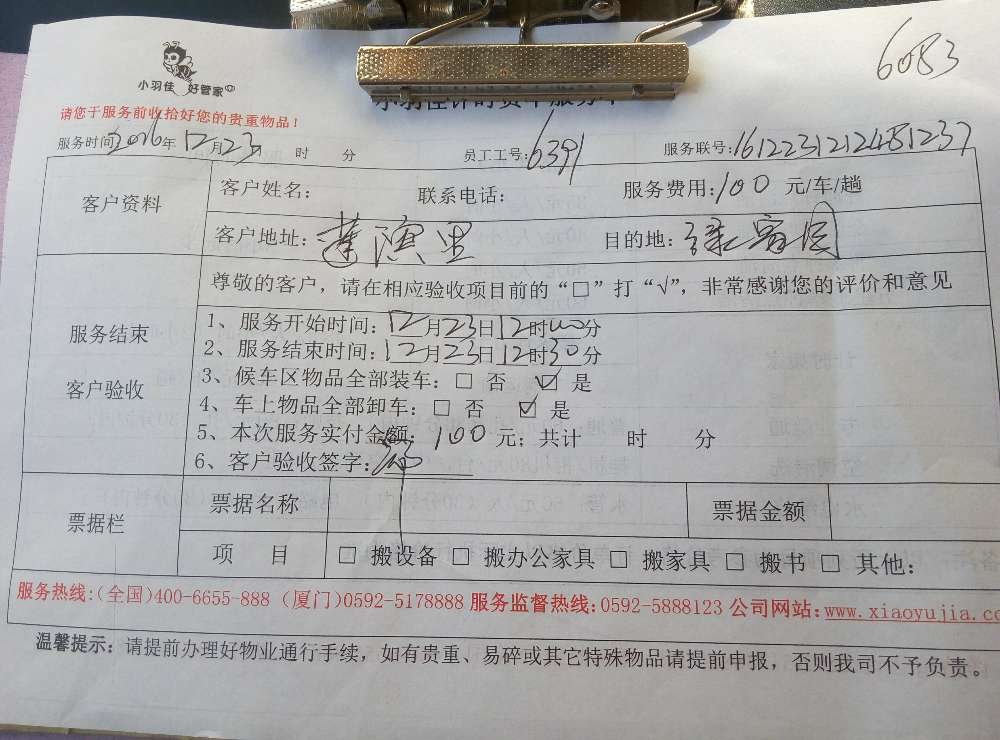 6083
小羽佳 好管家
小羽佳计时货车服务单
请您于服务前收拾好您的贵重物品！
服务时间2016年12月23日 时 分 员工工号:6391 服务联号:1612231212481237
客户资料
客户姓名: 联系电话: 服务费用:100 元/车/趟
客户地址:莲滨里 目的地:
服务结束
客户验收
尊敬的客户，请在相应验收项目前的“□”打“√”，非常感谢您的评价和意见
1、服务开始时间:12月23日12时00分
2、服务结束时间:12月23日12时30分
3、候车区物品全部装车: □ 否 ☑ 是
4、车上物品全部卸车: □ 否 ☑ 是
5、本次服务实付金额: 100 元; 共计 时 分
6、客户验收签字:
票据栏
票据名称 票据金额
项 目 □ 搬设备 □ 搬办公家具 □ 搬家具 □ 搬书 □ 其他:
服务热线:(全国)400-6655-888 (厦门)0592-5178888 服务监督热线:0592-5888123 公司网站:www.xiaoyujia.co
温馨提示: 请提前办理好物业通行手续，如有贵重、易碎或其它特殊物品请提前申报，否则我司不予负责。